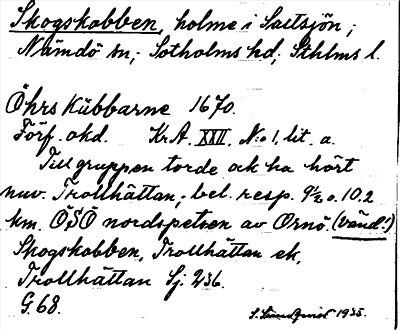 Skogskobben, holme i Saltsjön;
Nämdö sn; Sotholms hd; Sthlms l.
Öhrs Kübbarne 1670.
Förf. okd. Kr.A. XXII, No 1, lit. a.
Till gruppen torde ock ha hört
nuv. Trollhättan; bel. resp. 9½ o. 10.2
km. ÖSO nordspetsen av Ornö. (Vänd!)
Skogskobben, Trollhättan ek,
Trollhättan Sj. 236.
G. 68.
S. 1935.